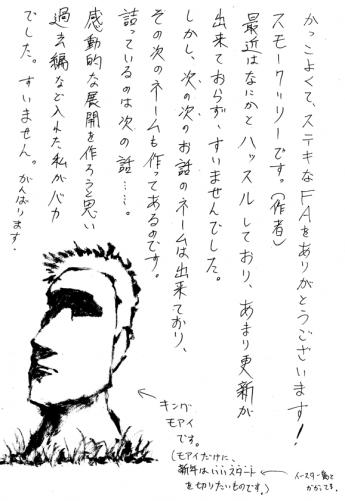 かっこよくて、ステキなFAをありがとうございます!
スモークリリーです。(作者)
最近はなにかとハッスルしており、あまり更新が
出来ておらず、すいませんでした。
しかし、次の、次のお話のネームは出来ており、
その次のネームも作ってあるのです。
詰っているのは次の話……。
感動的な展開を作ろうと思い
過去編など入れた私がバカ
でした。すいません。がんばります。
キング
モアイ
です。
(モアイだけに、
新年はいいスタート
を切りたいものです)
イースター島と
かかってる。